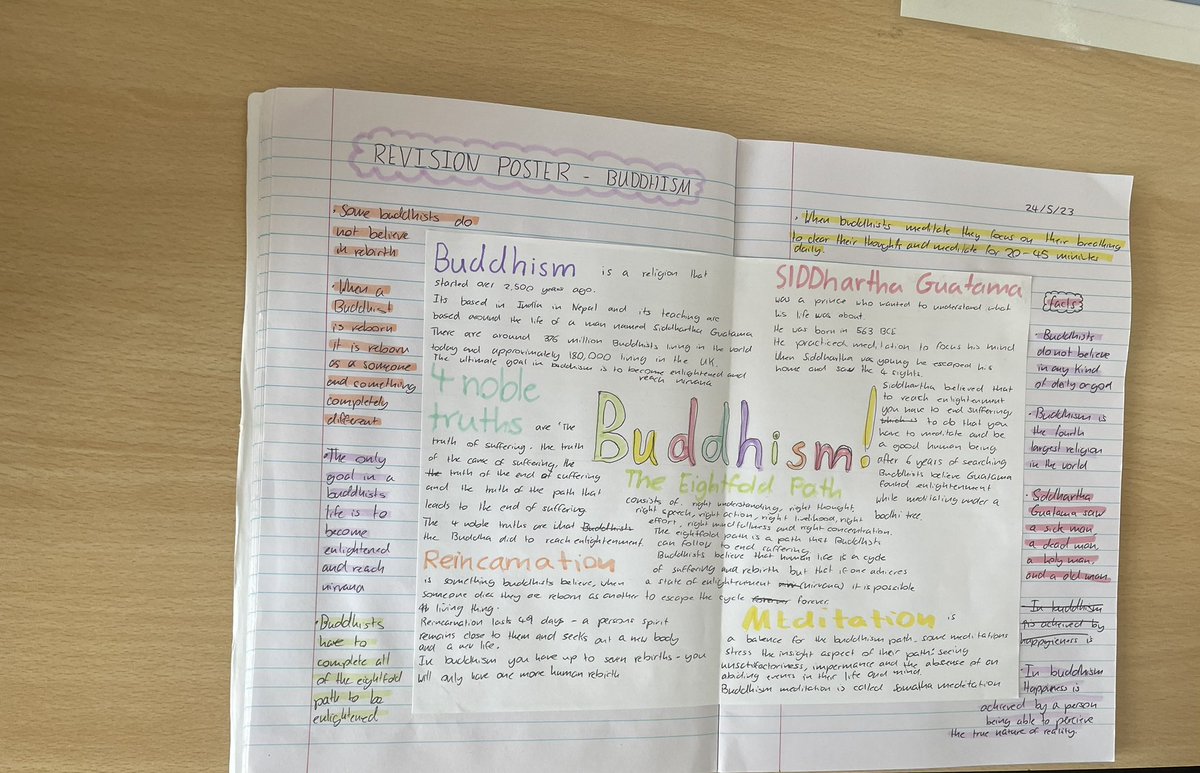 REVISION POSTER - BUDDHISM
• Some buddhists do
not believe
in rebirth
• When a
Buddhist
is reborn
it is reborn
as a someone
and something
completely
different
• The only
goal in a
buddhists
life is to
become
enlightened
and reach
nirvana
• Buddhists
have to
complete all
of the eightfold
path to be
enlightened
Buddhism is a religion that
started over 2,500 years ago.
Its based in India in Nepal and its teaching are
based around the life of a man named Siddhartha Guatama
There are around 376 million Buddhists living in the world
today and approximately 180,000 living in the UK.
The ultimate goal in buddhism is to become enlightened and
reach nirvana
4 noble
truths are 'The
truth of suffering. the truth
of the cause of suffering, the
the truth of the end of suffering
and the truth of the path that
leads to the end of suffering.
The 4 noble truths are what Buddhists
the Buddha did to reach enlightenment.
Reincarnation
is something buddhists believe, when
someone dies they are reborn as another
living thing.
Reincarnation lasts 49 days - a persons spirit
remains close to them and seeks out a new body
and a new life.
In buddhism you have up to seven rebirths - you
will only have one more human rebirth
Buddhism!
The Eightfold Path
consists of right understanding, right thought,
right speech, right action, right livelihood, right
effort, right mindfullness and right concentration.
The eightfold path is a path that Buddhists
can follow to end suffering
Buddhists believe that human life is a cycle
of suffering and rebirth but that if one achieves
a state of enlightenment (nirvana) it is possible
to escape the cycle forever forever.
24/5/23
• When buddhists meditate they focus on their breathing
to clear their thoughts and meditate for 20-45 minutes
daily.
SIDDhartha Guatama
was a prince who wanted to understand what
his life was about.
He was born in 563 BCE
He practiced meditation to focus his mind
When Siddhartha was young he escaped his
home and saw the 4 sights.
Siddhartha believed that
to reach enlightenment
you have to end suffering,
which is to do that you
have to meditate and be
a good human being.
after 6 years of searching
Buddhists believe Guatama
found enlightenment
while meditating under a
bodhi tree.
Meditation is
a balence for the buddhism path. some meditations
stress the insight aspect of their path: seeing
unsatisfactoriness, impermance and the absense of an
abiding events in their life and mind.
Buddhism meditation is called samatha meditation
facts
• Buddhists
do not believe
in any kind
of deity or god
• Buddhism is
the fourth
largest religion
in the world
• Siddhartha
Guatama saw
a sick man,
a dead man,
a holy man,
and a old man
• In buddhism
achieved by
happyieness is
• In buddhism
Happiness is
achieved by a person
being able to percieve
the true nature of reality.